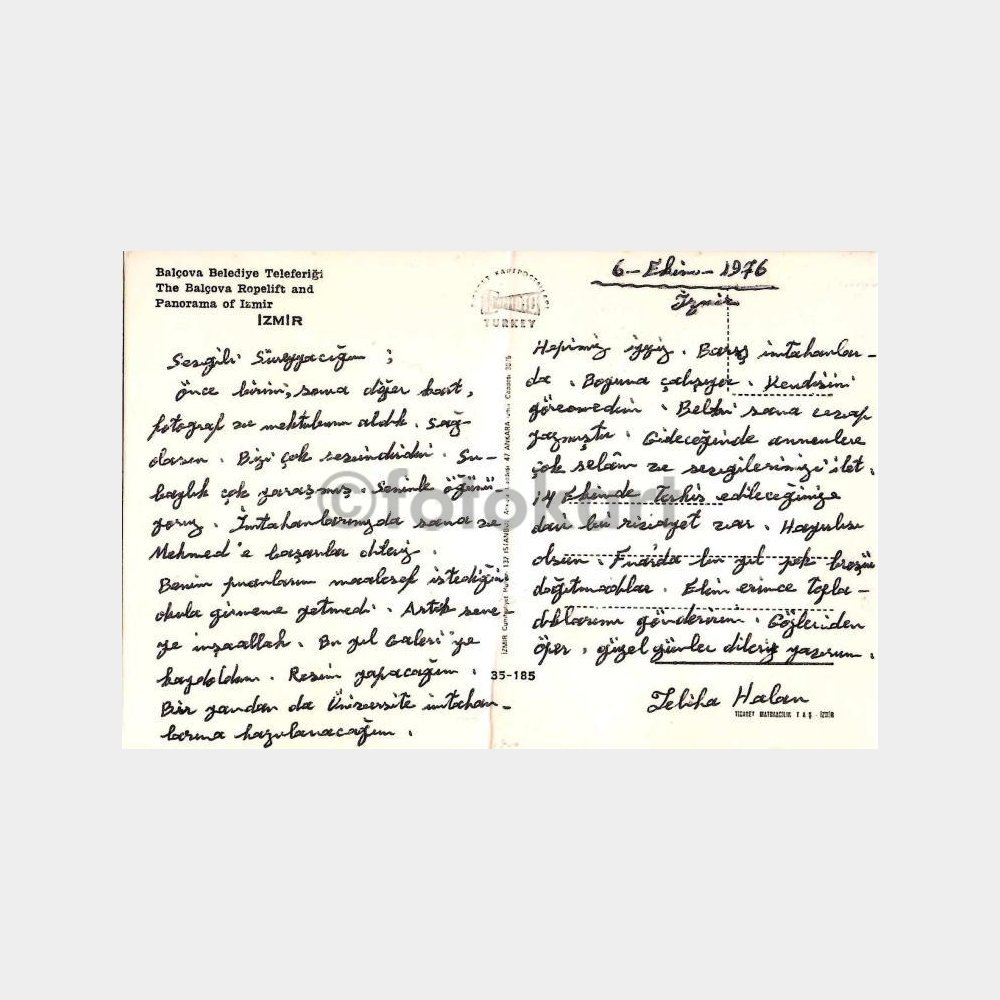 Balçova Belediye Teleferiği
The Balçova Ropelift and
Panorama of Izmir
İZMİR
Sevgili Süreyyacığım ;
Önce birini, sonra diğer kart,
fotoğraf ve mektubunu aldık. Sağ-
olasın. Bizi çok sevindirdin. Su-
baylık çok yaraşmış. Seninle öğünü-
yoruz. İmtahanlarınızda sana ve
Mehmed'e başarılar dileriz.
Benim puanlarım maalesef istediğim
okula girmeme yetmedi. Artık sene
ye inşaallah. Bu yıl Galeri'ye
kaydoldum. Resim yapacağım.
Bir yandan da Üniversite imtahan-
larına hazırlanacağım.
TURKEY
35-185
6-Ekim-1976
İzmir
Hepimiz iyiyiz. Barış imtahanlar-
da. Boyuna çalışıyor. Kendisini
göremedim. Belki sana cevap
yazmıştır. Gideceğinde annenlere
çok selâm ve sevgilerimizi ilet.
14 Ekimde Terhis edileceğinize
dair bir rivayet var. Hayırlısı
olsun. Fuarda bu yıl pek broşür
dağıtmadılar. Elim erince topla-
dıklarımı gönderirim. Gözlerinden
öper, güzel günler dileriz yavrum.
Halan
TİCARET MATBAACILIK T.A.Ş. - İZMİR
©fotokart